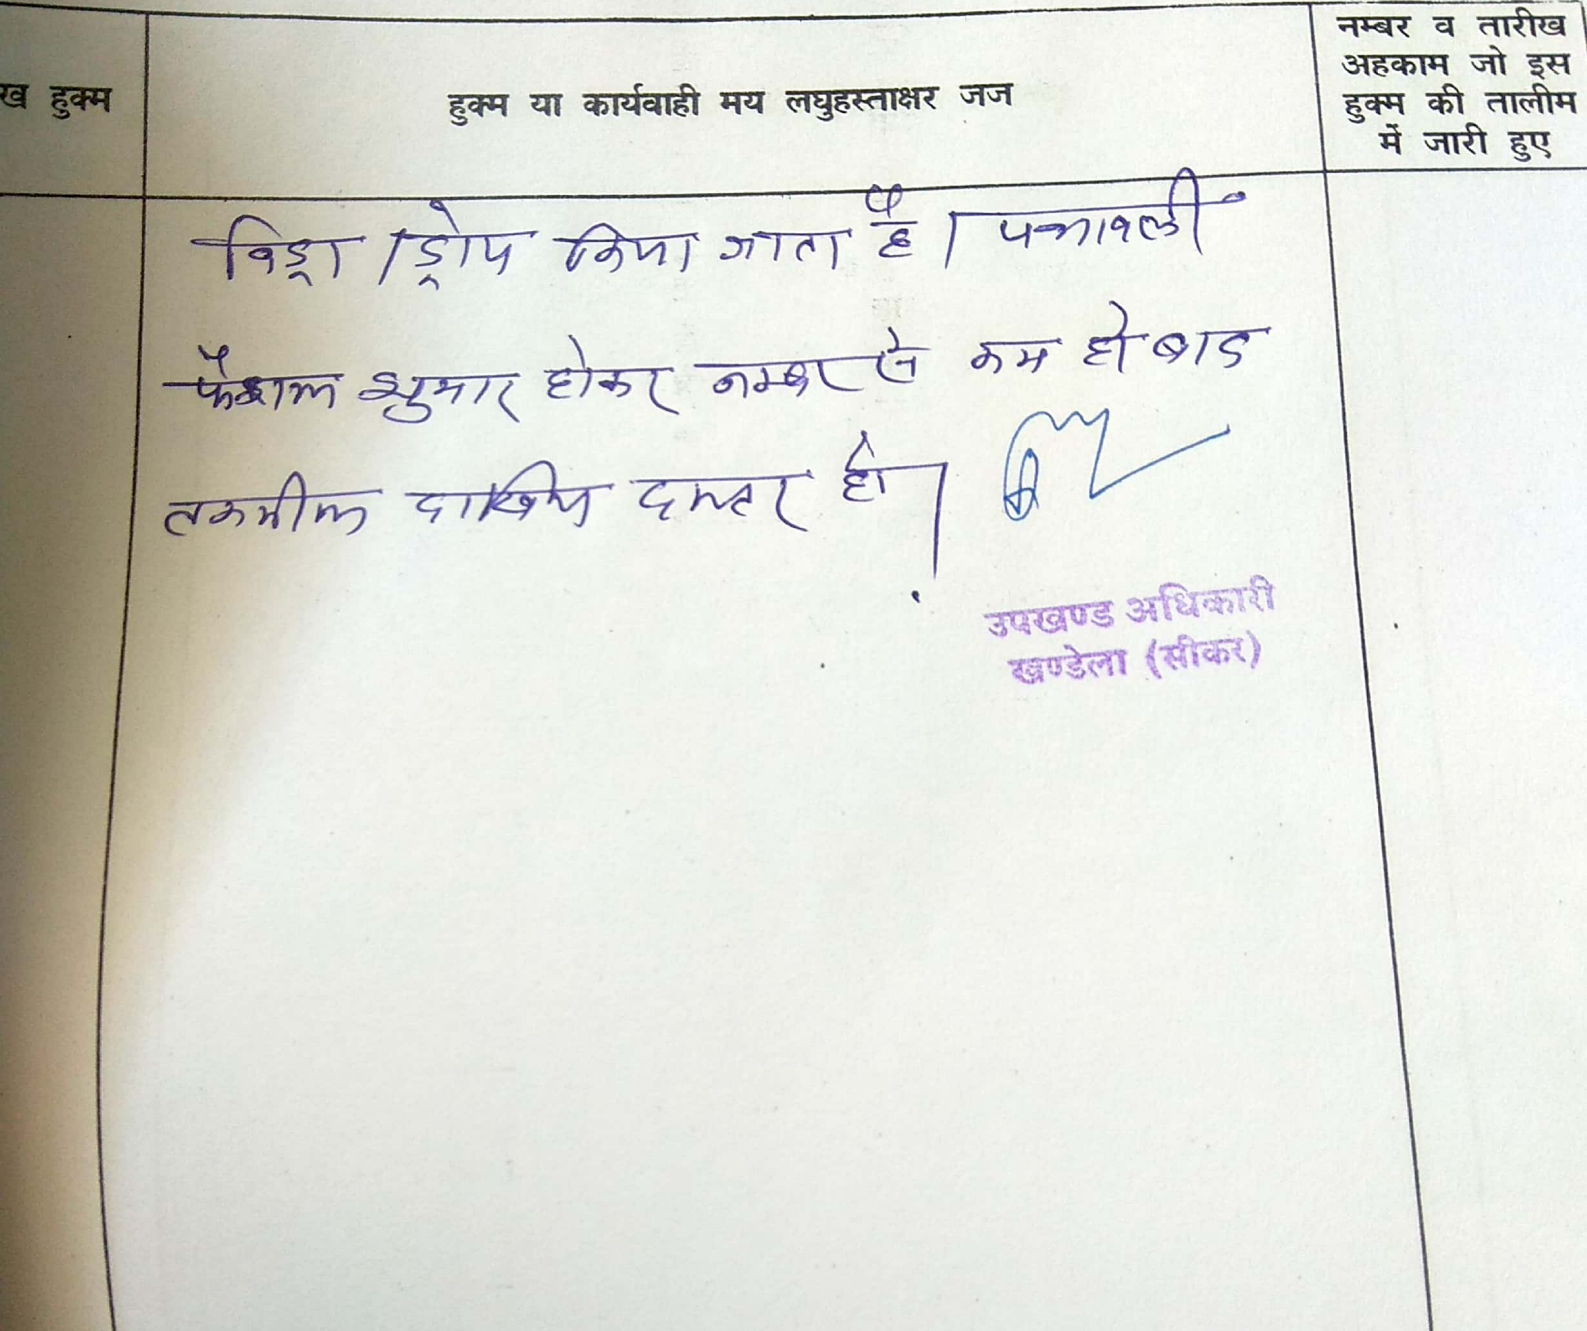 ख हुक्म
हुक्म या कार्यवाही मय लघुहस्ताक्षर जज
नम्बर व तारीख
अहकाम जो इस
हुक्म की तालीम
में जारी हुए
विड्रा / ड्रोप किया जाता है। पत्रावली
फैशल शुमार होकर नम्बर से कम हो बाद
तकमील दाखिल दफ्तर हो।
उपखण्ड अधिकारी
खण्डेला (सीकर)